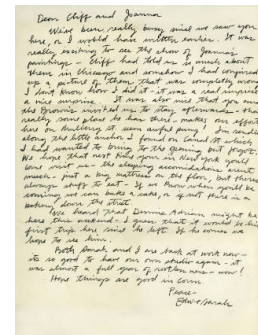 Dear Cliff and Joanna
We've been really busy since we saw you
here, or I would have written earlier. It was
really exciting to see the show of Joanna's
paintings - Cliff had told us so much about
them in Chicago and somehow I had conjured
up a picture of them that was completely wrong
I don't know how I did it - it was a real
a nice surprise. It was also nice that
the Browns invited us to stay afterwards - that's
really some place he has there - makes our
here on Mulberry st seem awful puny! I'm sending
along the little anchor I found on Canal st which
I had wanted to bring to the opening but forgot.
We hope that next time you're in New York you'll
come visit us - the sleeping accomodations aren't
much - just a big mattress on the floor, but there's
always stuff to eat - If we know when you'll be
coming we can bake a cake, or if not there is a
bakery down the street.
We heard that Dennis Adrian might be
here this weekend - I guess that it would be his
first trip here since he left. If he comes we
hope to see him.
Both Sarah and I are back at work now -
its so good to have our own studio again - it
was almost a full year of restlessness - wow!
Hope things are good in
Peace -
Edw & Sarah